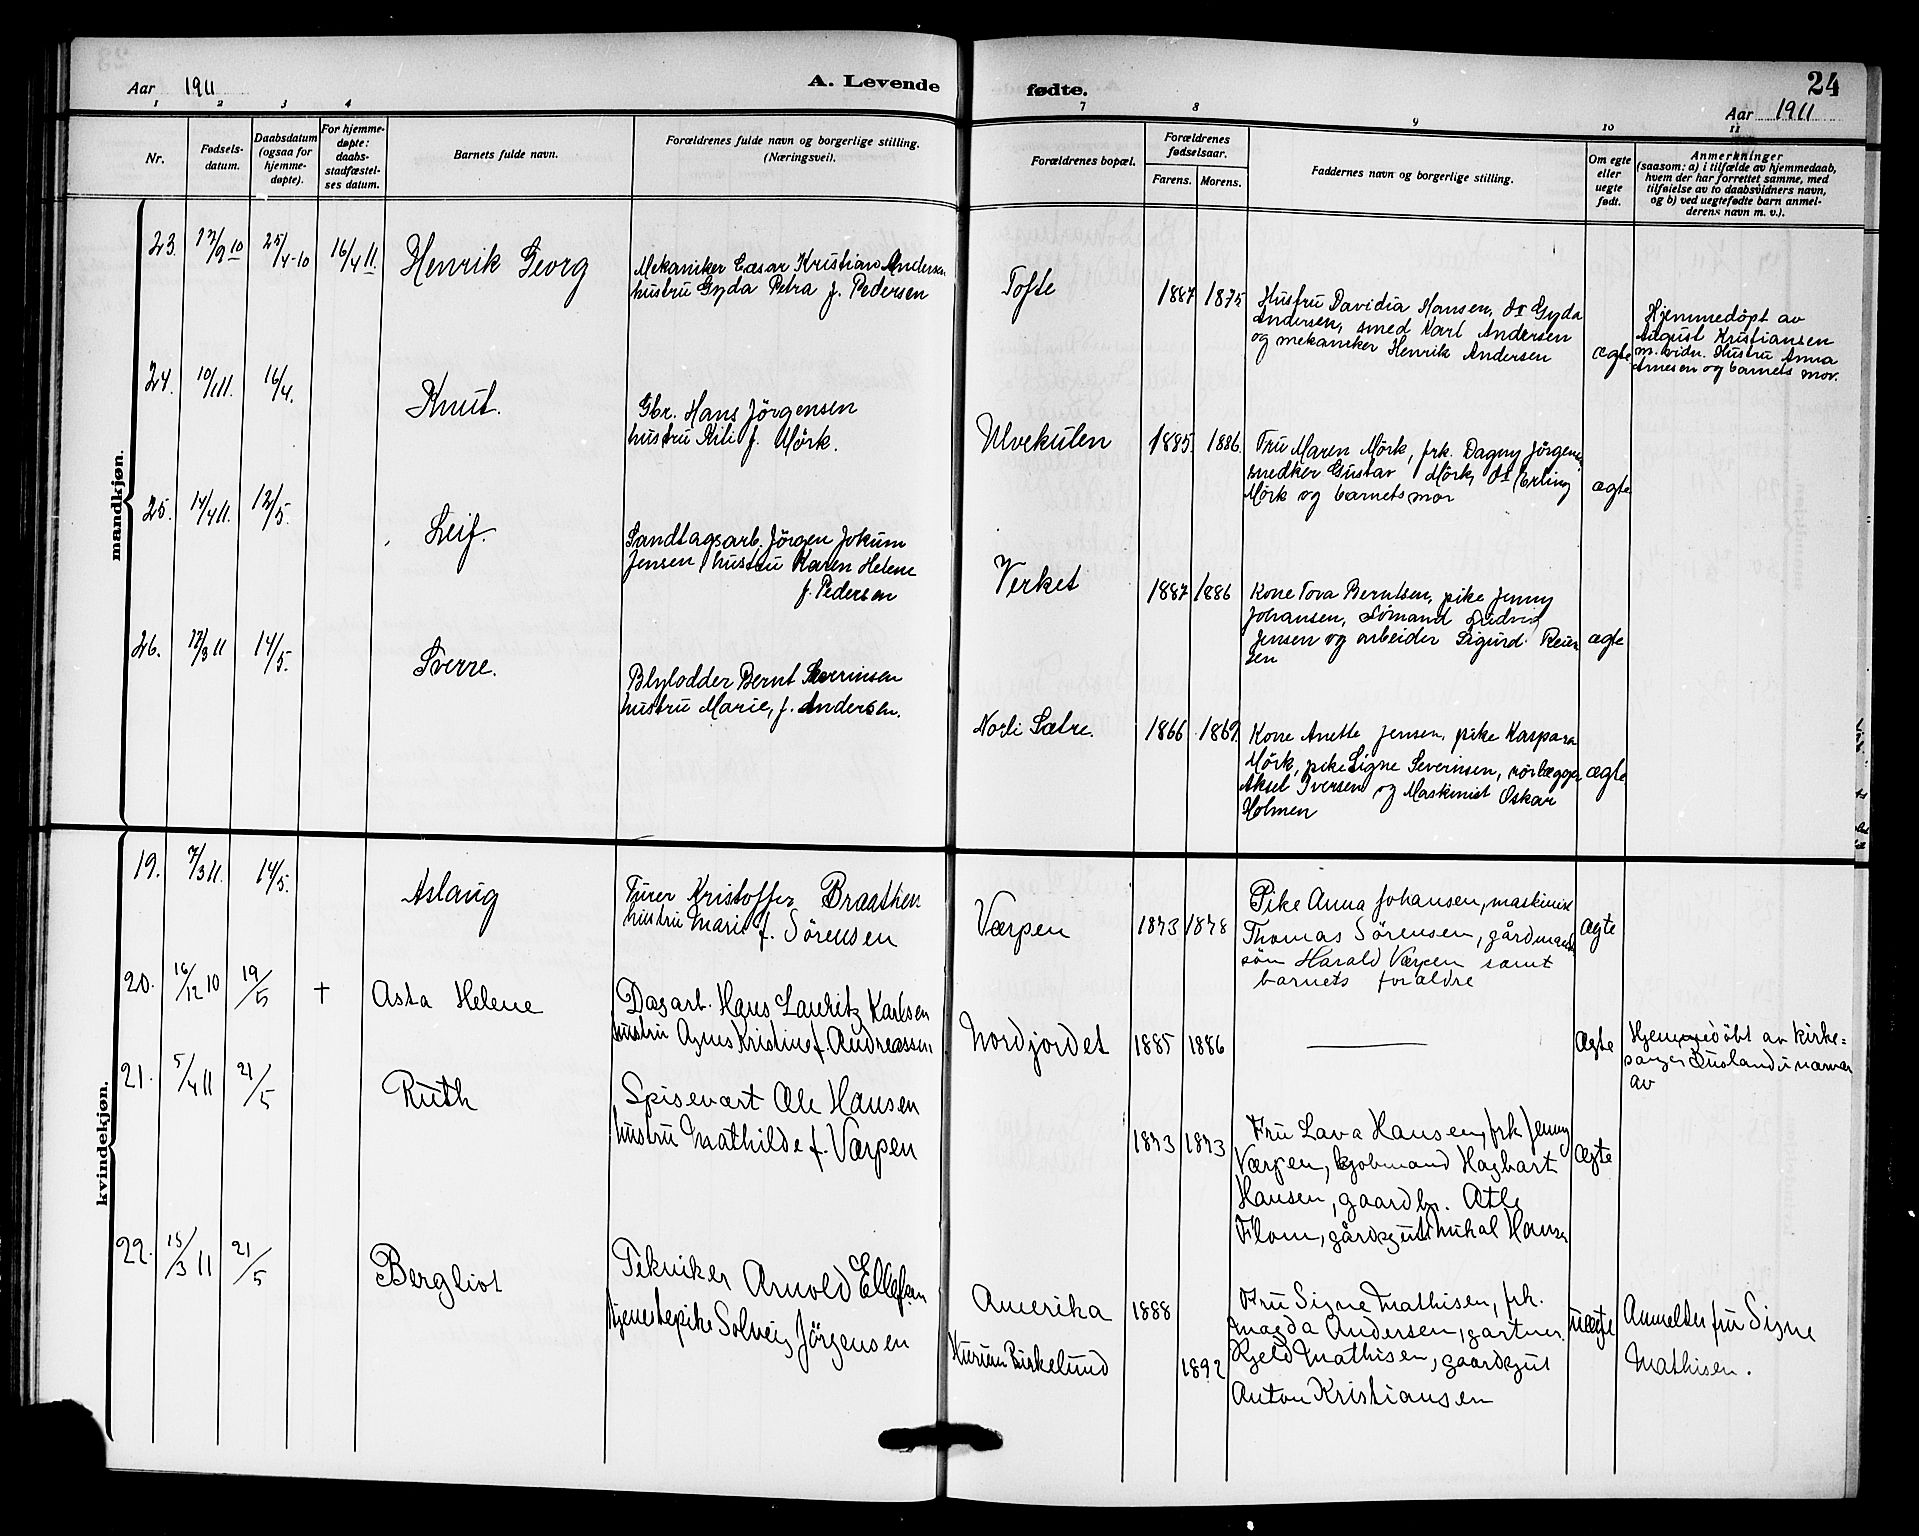 Aar 1911
A. Levende
fødte.
24
Aar 1911
1 2 3 4 7 8 9 10 11
Nr.
Fødsels-
datum.
Daabsdatum
(ogsaa for
hjemme-
døpte).
For hjemme-
døpte:
daabs-
stadfæstel-
ses datum.
Barnets fulde navn.
Forældrenes fulde navn og borgerlige stilling.
(Næringsvei).
Forældrenes bopæl.
Forældrenes
fødselsaar.
Farens. Morens.
Faddernes navn og borgerlige stilling.
Om egte
eller
uegte
født.
Anmerkninger
(saasom: a) i tilfælde av hjemmedaab,
hvem der har forrettet samme, med
tilføielse av to daabsvidners navn,
og b) ved uegtefødte barn anmel-
derens navn m. v.).
mandkjøn.
23. 17/9 10 25/4-10 16/4 11. Henrik Georg
Mekaniker Cæsar Kristian Andersen
hustru Gyda Petra f. Pedersen
Tofte
1887 1875
Hustru Davidia Hansen, ds Gyda
Andersen, smed Karl Andersen
og mekaniker Henrik Andersen
ægte
Hjemmedøpt av
August Kristiansen
m. vidn. Hustru Anna
Arnesen og barnets mor.
24. 10/1 11. 16/4. Knut.
Gbr. Hans Jörgensen
hustru f. Mörk.
Ulvekulen
1885. 1886.
Fru Maren Mörk, frk. Dagny Jörgens.
snedker Gustav Mörk, ds Erling
Mörk og barnets mor
ægte
25. 14/4 11. 12/5. Leif.
Sandtagsarb. Jörgen Jokum
Jensen, hustru Karen Helene
f. Pedersen
Verket
1887 1886
Kone Tova Berntsen, pike Jenny
Johansen, Sømand Ludvig
Jensen og arbeider Sigurd
sen
ægte
26. 17/3 11 14/5. Sverre.
Blylodder Bernt Severinsen
hustru Marie, f. Andersen.
Norli Sætre.
1866 1869.
Kone Anette Jensen, pike Kaspara
Mörk, pike Signe Severinsen, rörlægger
Aksel Iversen og Maskinist Oskar
Holmen
ægte
kvindekjøn.
19. 7/3 11. 14/5. Aslaug
Furer Kristoffer Braathen
hustru Marie f. Sörensen
Værpen
1873 1878
Pike Anna Johansen, maskinist
Thomas Sörensen, gårdmands
sön Harald Værpen samt
barnets forældre
Ægte
20. 16/12 10 19/5 + Asta Helene
Dagarb. Hans Lauritz Karlsen
hustru Agnes Kristine f. Andreassen
Nordjordet
1885 1886
Ægte
Hjemmedöbt av kirke=
sanger
av
21. 5/4 11 21/5 Ruth
Spisevært Ole Hansen
hustru Mathilde f. Værpen
1873 1873
Fru Lava Hansen, frk Jenny
Værpen, kjobmand Hagbart
Hansen, gaardbr. Atle
Flom, gårdsgut Hansen
Ægte
22. 15/3 11 21/5 Bergliot
Tekniker Arnold Ellefsen
tjenestepike Solveig Jörgensen
Amerika 1888
Hurum Birkelund 1892
Fru Signe Mathisen, frk.
Magda Andersen, gartner
Kjeld Mathisen, gaardsgut
Anton Kristiansen
uægte
Anmelder fru Signe
Mathisen.